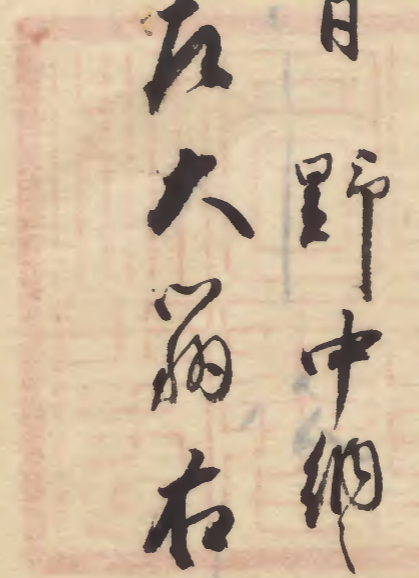 日野中納
左大弼右